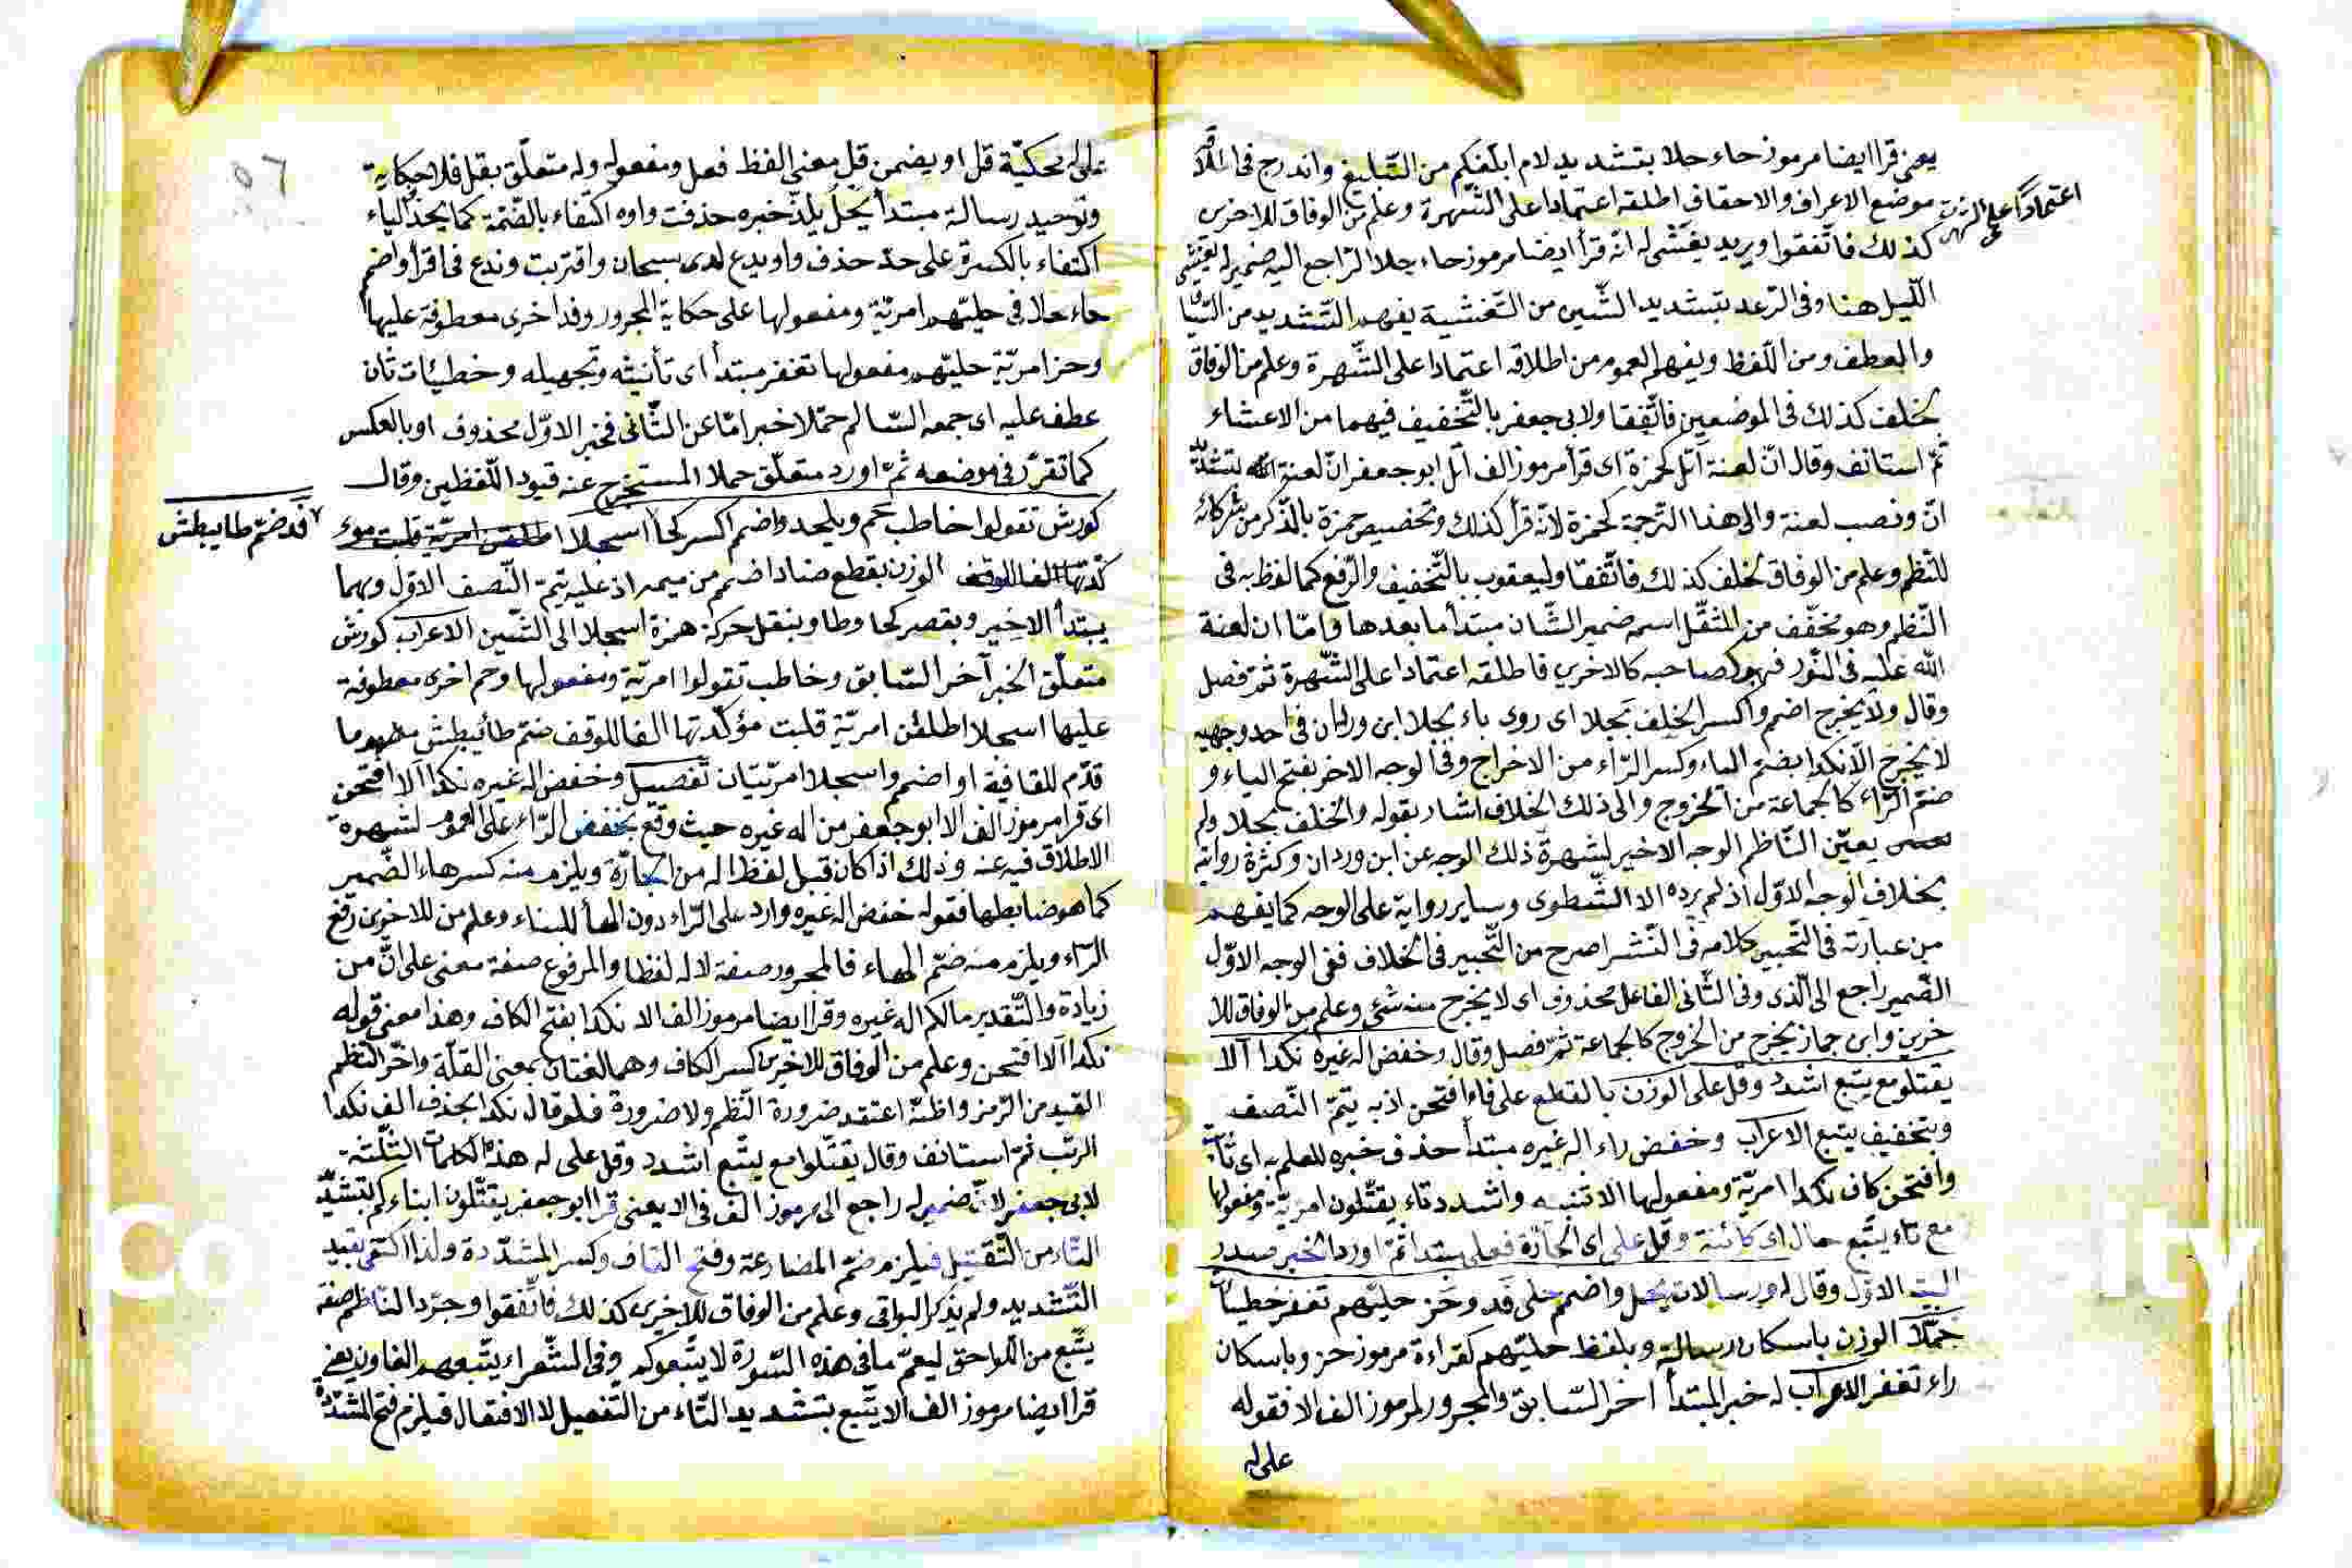 يعنى قرا ايضا مرموز حاء حلا بتشديد لام ابلغكم من التبليغ واندرج فى اطلاقه
موضع الاعراف والاحقاف اطلقه اعتمادا على الشهرة وعلم من الوفاق للاخرين
اعتمادا على الشهرة
كذلك فاتفقوا ويريد يغشى له انه قرأ ايضا مرموز حاء حلا الراجع اليه ضمير له يغشى
الليل هنا وفى الرعد بتشديد الشين من التغشية يفهم التشديد من السباق
والعطف ومن اللفظ ويفهم العموم من اطلاقه اعتمادا على الشهرة وعلم من الوفاق
لخلف كذلك فى الموضعين فاتفقا ولابى جعفر بالتخفيف فيهما من الاغشاء
ثم استانف وقال ان لعنة اتل كحمزة اى قرأ مرموز الف اتل ابو جعفر ان لعنة الله بتشديد
ان ونصب لعنة والى هذا الترجمة كحمزة لانه قرأ كذلك وتخصيص حمزة بالذكر من شركائه
للنظم وعلم من الوفاق لخلف كذلك فاتفقا وليعقوب بالتخفيف والرفع كما لفظ به فى
النظم وهو مخفف من المثقل اسمه ضمير الشان مبتدأ ما بعدها واما ان لعنة
الله عليه فى النور فهو كصاحبه كالاخرين فاطلقه اعتمادا على الشهرة ثم فصل
وقال ولا يخرج اضمم واكسر الخلف بجلا اى روى باء بجلا ابن وردان فى احد وجهيه
لا يخرج الا نكدا بضم الياء وكسر الراء من الاخراج وفى الوجه الاخر بفتح الياء و
ضم الراء كالجماعة من الخروج والى ذلك الخلاف اشار بقوله والخلف بجلا ولم
يعين الناظم الوجه الاخير لشهرة ذلك الوجه عن ابن وردان وكثرة رواته
بخلاف الوجه الاول اذ لم يرده الا الشطوى وساير رواية على الوجه كما يفهم
من عبارته فى التحبير كلامه فى النشر اصرح من التحبير فى الخلاف ففى الوجه الاول
الضمير راجع الى الذى وفى الثانى الفاعل محذوف اى لا يخرج منه شئ وعلم من الوفاق للا
خرين وابن جماز يخرج من الخروج كالجماعة ثم فصل وقال وخفض اله غيره نكدا الا
يقتلو مع يتبع اشدد وقل على الوزن بالقطع على فاء افتحن اذ به يتم النصف
وبتخفيف يتبع الاعراب وخفض راء اله غيره مبتدأ حذف خبره للعلم به اى ثابت
وافتحن كاف نكدا امرية ومفعولها الا تنبيه واشدد تاء يقتلون امرية ومفعولها
مع تاء يتبع حال اى كائنة وقل على اى الجارة فعلى مبتدا ثم اورد الخبر صدر
البيت الاول وقال له ورسالات يحل واضمم حلى قد وحز حليهم تغفر خطيئات
حملا الوزن باسكان رسالة وبلفظ حليهم كقراءة مرموز حز وباسكان
راء تغفر الاعراب له خبر المبتدأ اخر السابق والمجرور لمرموز الف الا فقوله
على له
على له محكية قل او يضمن قل معنى الفظ فعل ومفعوله وله متعلق بقل فلا حكاية
وتوحيد رسالة مبتدأ يحل يلذ خبره حذفت واوه اكتفاء بالضمة كما يحذف الياء
اكتفاء بالكسرة على حد حذف واو يدع لدى سبحان واقتربت وندع فى اقرأ واضمم
حاء حلا فى حليهم امرية ومفعولها على حكاية المجرور وقد اخرى معطوفة عليها
وحز امرية حليهم مفعولها تغفر مبتدأ اى تأنيثه وتجهيله وخطيئات ثان
عطف عليه اى جمعه السالم حملا خبر اما عن الثانى فخبر الاول محذوف او بالعكس
كما تقرر فى موضعه ثم اورد متعلق حملا المستخرج عنه قيود اللفظين وقال
كورش تقولوا خاطب حم ويلحدو اضمم اكسر كحا اسجلا
قد ضم طا يبطش
الوزن بقطع ضاد اضمم من ميمه اذ عليه يتم النصف الاول وبها
يبتدأ الاخير وبقصر كحا وطا وبنقل حركة همزة اسجلا الى الشين الاعراب كورش
متعلق الخبر آخر السابق وخاطب تقولوا امرية ومفعولها وحم اخرى معطوفة
عليها اسجلا اطلقن امرية قلبت مؤكدتها الفا للوقف ضم طا يبطش
قدم للقافية او اضمم واسجلا امريتان تفصيل وخفض اله غيره نكدا الا افتحن
اى قرا مرموز الف الا ابو جعفر من اله غيره حيث وقع بخفض الراء على العموم لشهرة
الاطلاق فيه عنه وذلك اذا كان قبل لفظ اله من الجارة ويلزم منه كسر هاء الضمير
كما هو ضابطها فقوله خفض اله غيره وارد على الراء دون الهاء للبناء وعلم من للاخرين رفع
الراء ويلزم منه ضم الهاء فالمجرور صفة لاله لفظا والمرفوع صفة معنى على ان من
زيادة والتقدير مالكم اله غيره وقرأ ايضا مرموز الف الا نكدا بفتح الكاف وهذا معنى قوله
نكدا الا افتحن وعلم من الوفاق للاخرين كسر الكاف وهما لغتان بمعنى القلة واخر الناظم
القيد من الرمز واظنه اعتقد ضرورة النظم ولا ضرورة فلو قال نكدا بحذف الف نكدا
الرتب ثم استانف وقال يقتلوا مع يتبع اشدد وقل على له هذه الكلمات الثلثة
لابى جعفر لان ضمير له راجع الى مرموز الف فى الا يعنى قرا ابو جعفر يقتلون ابناءكم بتشديد
التاء من التقتيل فيلزم ضم المضارعة وفتح القاف وكسر المشددة ولذا اكتفى بقيد
التشديد ولم يذكر البواقى وعلم من الوفاق للاخرين كذلك فاتفقوا وجرد الناظم صفة
يتبع من اللواحق ليعم ما فى هذه السورة لا يتبعوكم وفى الشعراء يتبعهم الغاون يعنى
قرا ايضا مرموز الف الا يتبع بتشديد التاء من التفعيل لا الافتعال فيلزم فتح المشددة